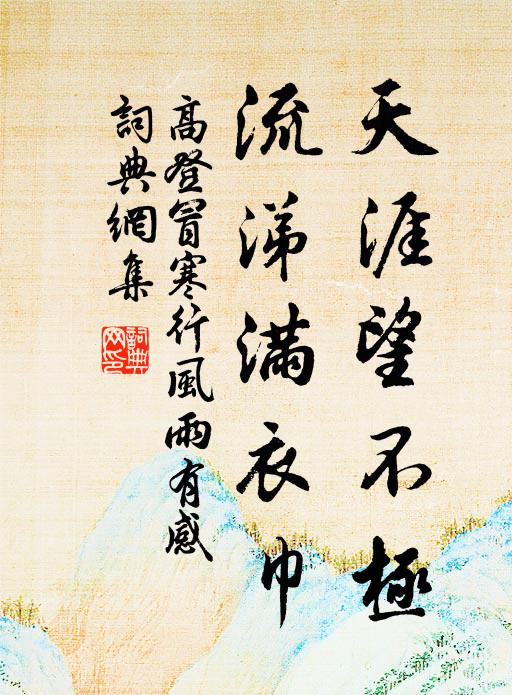 天涯望不極
流涕滿衣巾
高登冒寒行風雨有感
詞典網集
詞典網印